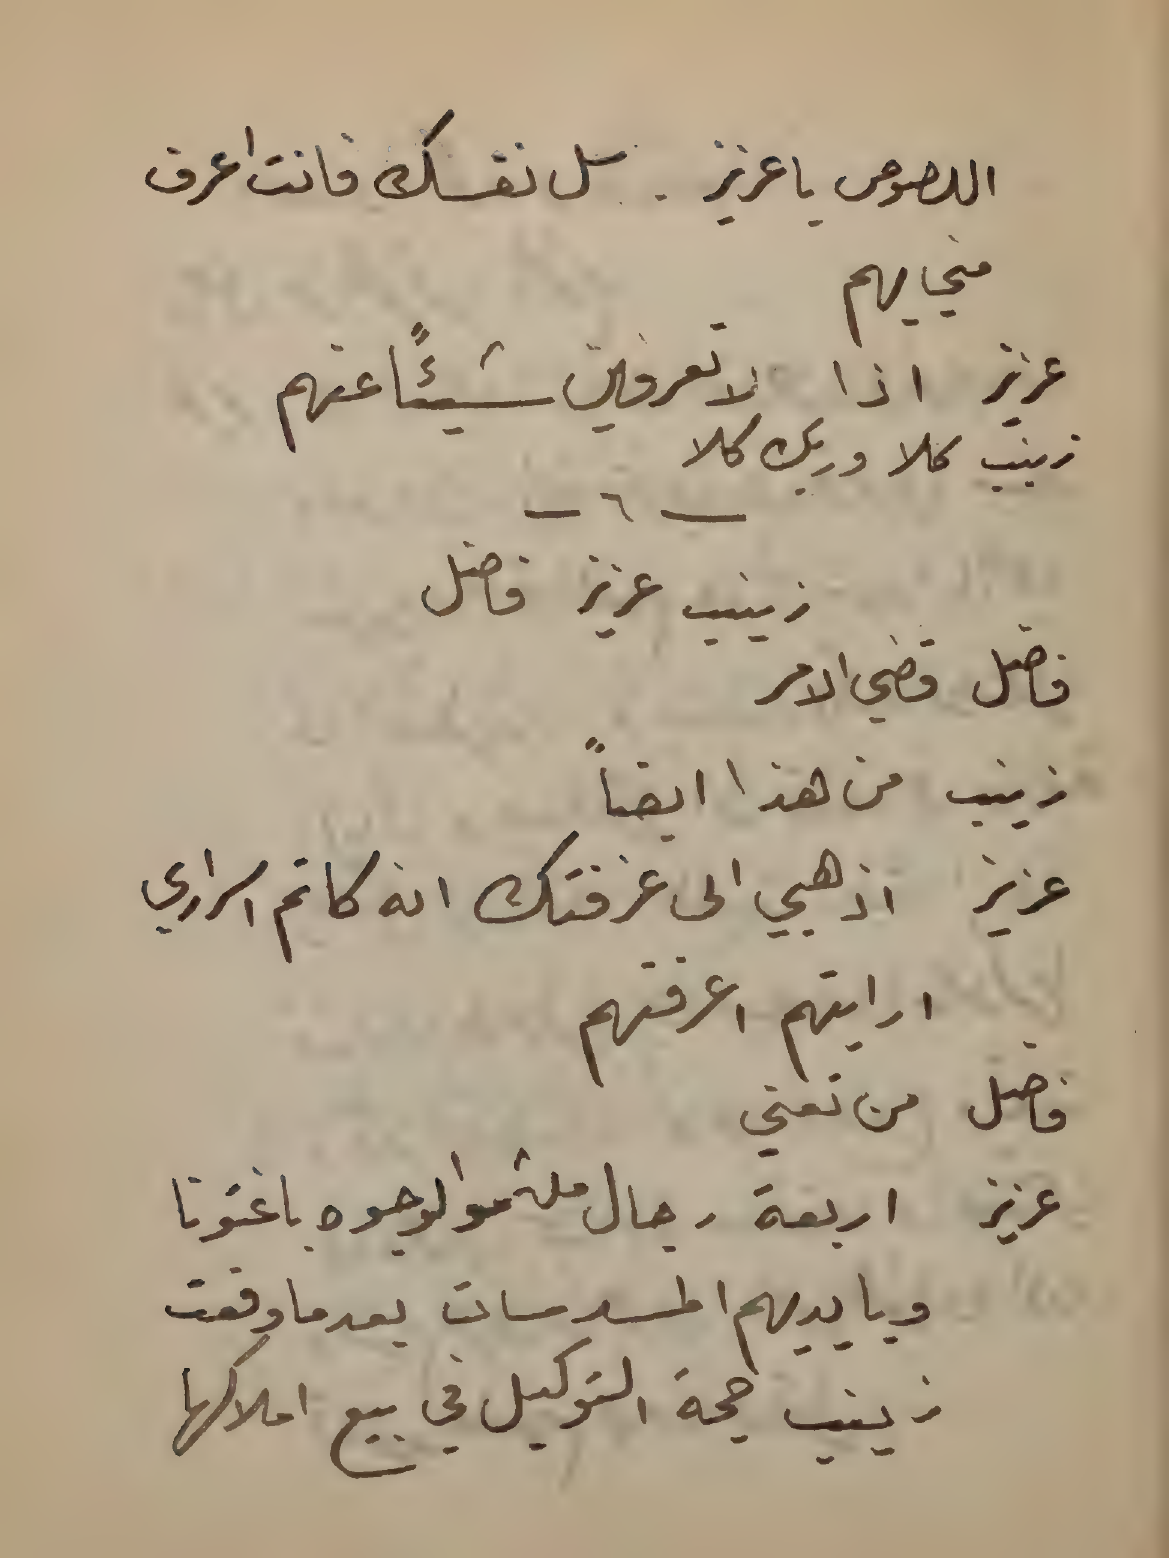 اللصوص يا عزيز . سل نفسك فانت اعرف
مني بهم
عزيز اذا لا تعرفين شيئًا عنهم
زينب كلا وربك كلا
— ٦ —
زينب عزيز فاضل
فاضل قضي الامر
زينب من هذا ايضاً
عزيز اذهبي الى غرفتك انه كاتم اسراري
ارايتهم اعرفتهم
فاضل من تعني
عزيز اربعة رجال ملثموا لوجوه باغتونا
وبايديهم المسدسات بعدما وقعت
زينب حجة التوكيل في بيع املاكها